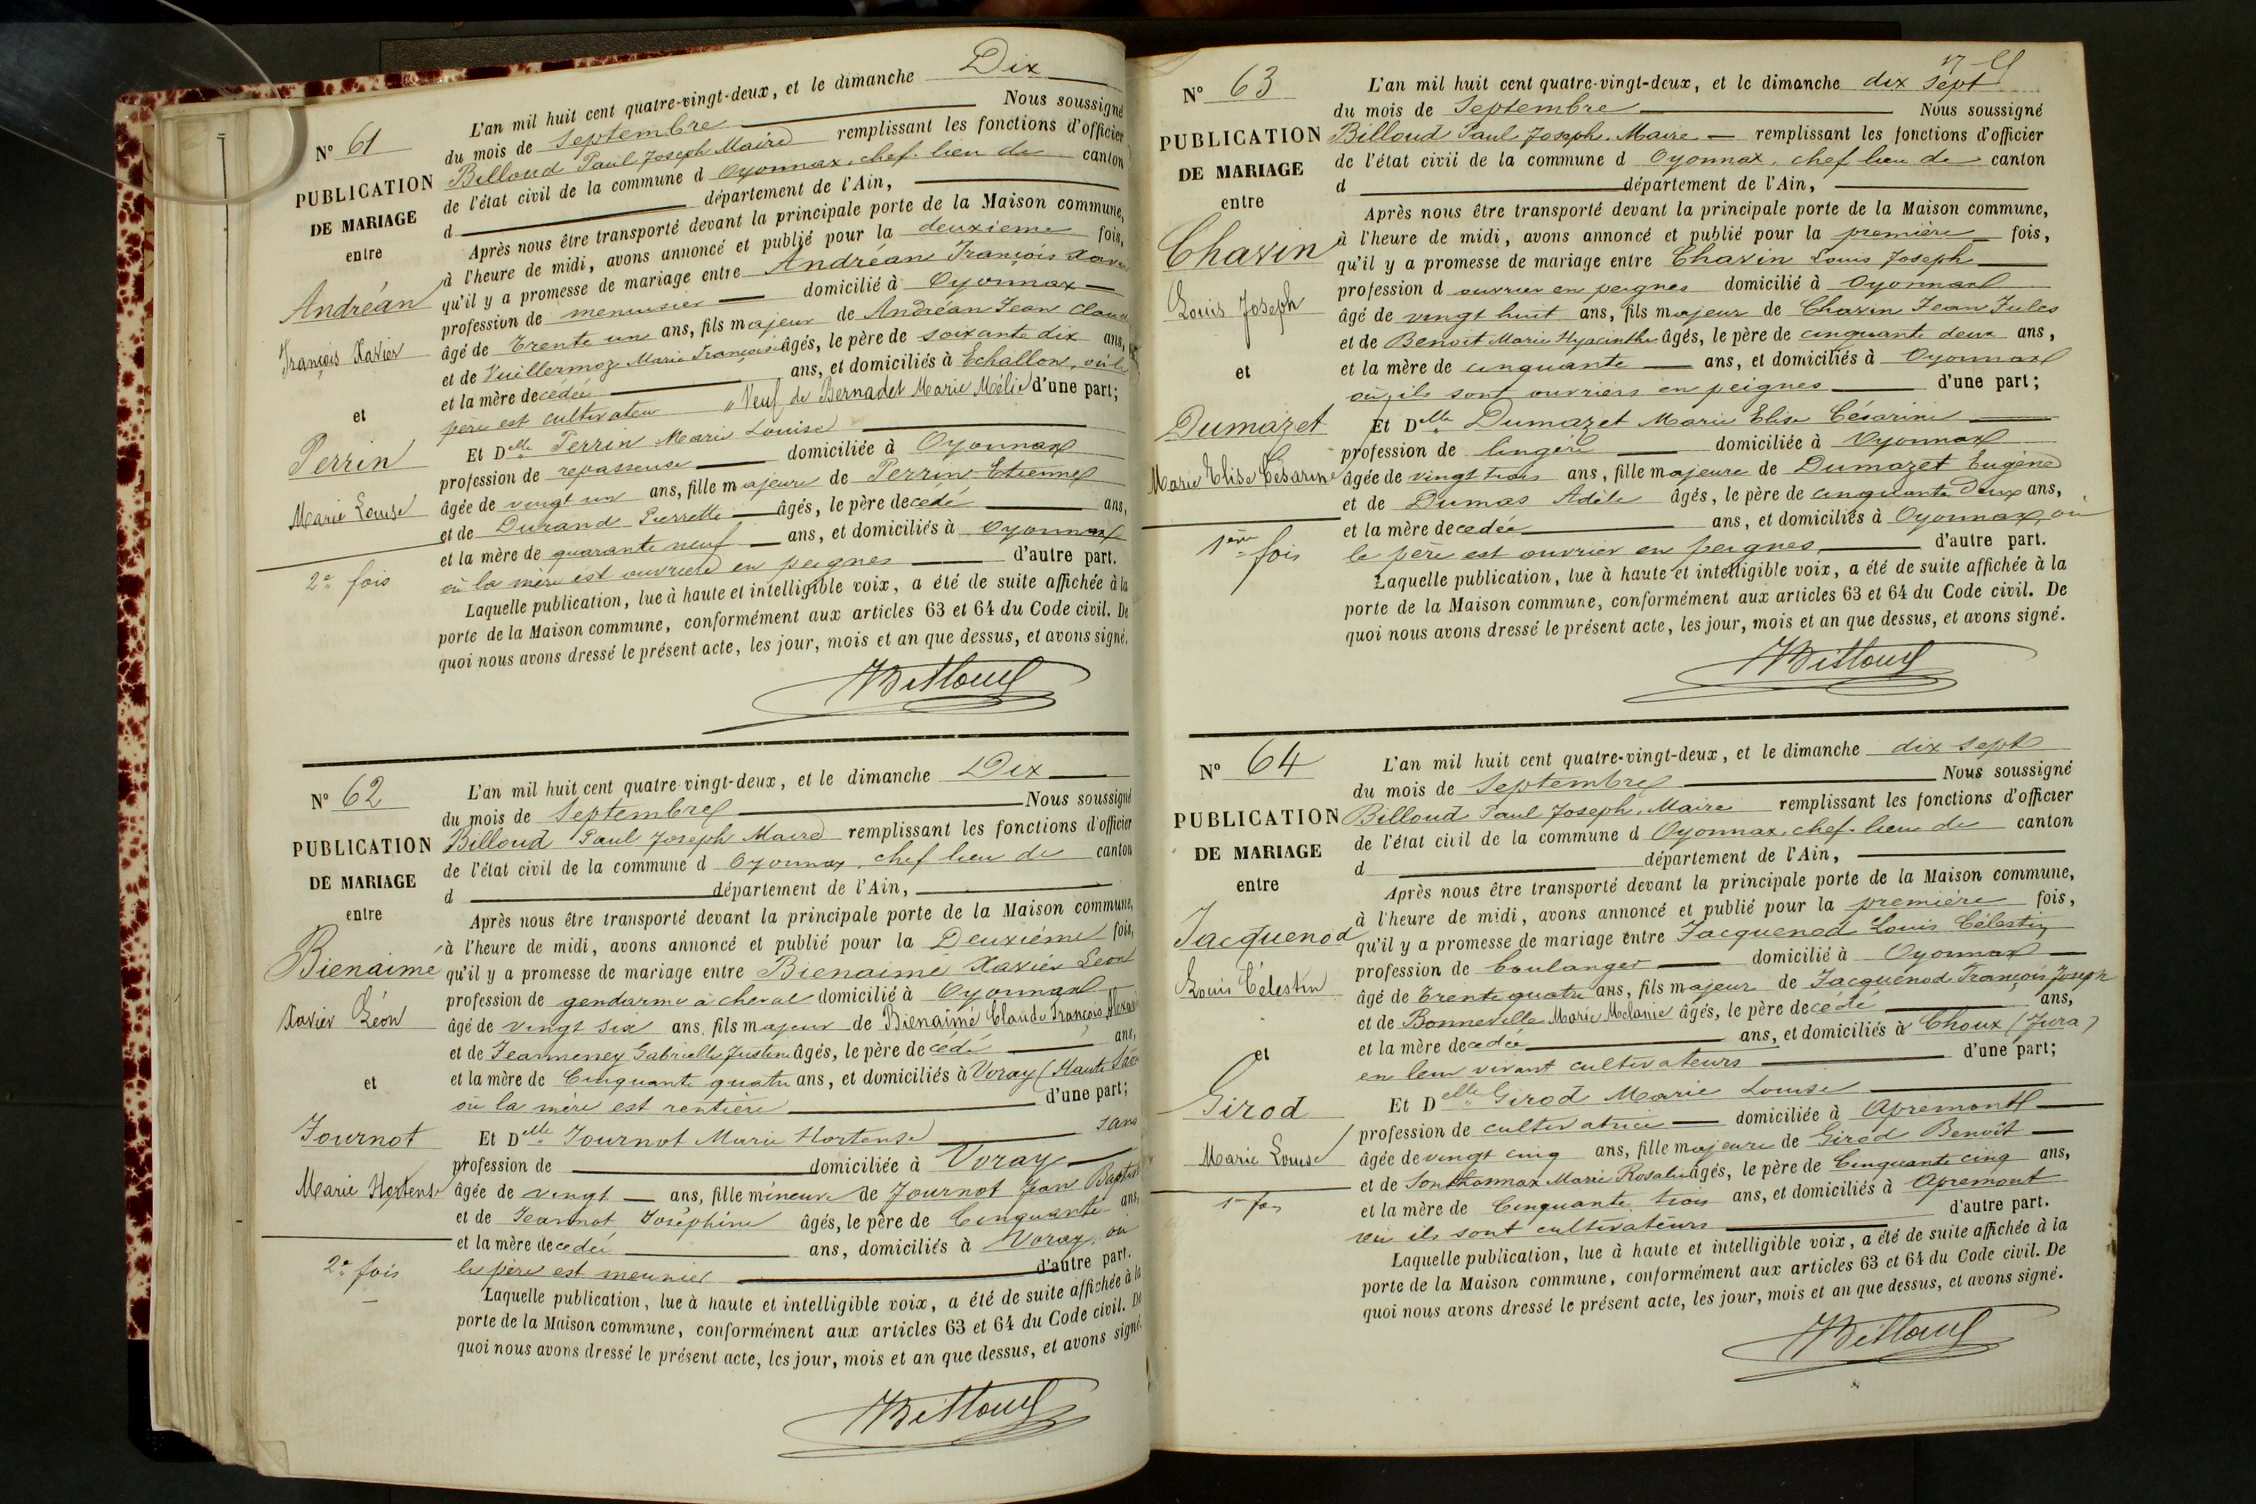 N° 61
PUBLICATION
DE MARIAGE
entre
Andréan
François Xavier
et
Perrin
Marie Louise
2e fois
L'an mil huit cent quatre-vingt-deux, et le dimanche Dix
du mois de Septembre Nous soussigné
Billoud Paul Joseph Maire remplissant les fonctions d'officier
de l'état civil de la commune d Oyonnax, chef-lieu de canton
d département de l'Ain,
Après nous être transporté devant la principale porte de la Maison commune,
à l'heure de midi, avons annoncé et publié pour la deuxième fois,
qu'il y a promesse de mariage entre Andréan François Xavier
profession de menuisier domicilié à Oyonnax
âgé de Trente un ans, fils majeur de Andréan Jean Claude
et de Vuillermoz Marie Françoise âgés, le père de soixante dix ans,
et la mère decedée ans, et domiciliés à Echallon, où le
père est cultivateur Veuf de Bernadet Marie Mélie d'une part;
Et Delle Perrin Marie Louise
profession de repasseuse domiciliée à Oyonnax
âgée de vingt un ans, fille majeure de Perrin Etienne
et de Durand Pierrette âgés, le père decédé ans,
et la mère de quarante neuf ans, et domiciliés à Oyonnax
où la mère est ouvrière en peignes d'autre part.
Laquelle publication, lue à haute et intelligible voix, a été de suite affichée à la
porte de la Maison commune, conformément aux articles 63 et 64 du Code civil. De
quoi nous avons dressé le présent acte, les jour, mois et an que dessus, et avons signé.
Billoud
N° 62
PUBLICATION
DE MARIAGE
entre
Bienaimé
Xavier Léon
et
Journot
Marie Hortense
2e fois
L'an mil huit cent quatre-vingt-deux, et le dimanche Dix
du mois de Septembre Nous soussigné
Billoud Paul Joseph Maire remplissant les fonctions d'officier
de l'état civil de la commune d Oyonnax, chef lieu de canton
d département de l'Ain,
Après nous être transporté devant la principale porte de la Maison commune,
à l'heure de midi, avons annoncé et publié pour la Deuxiéme fois,
qu'il y a promesse de mariage entre Bienaimé Xavier Léon
profession de gendarme à cheval domicilié à Oyonnax
âgé de vingt six ans, fils majeur de Bienaimé Claude François
et de Jeanmeney Gabrielle Justine âgés, le père decédé ans,
et la mère de Cinquante quatre ans, et domiciliés à Voray (Haute
où la mère est rentière d'une part;
Et Delle Journot Marie Hortense sans
profession de domiciliée à Voray
âgée de vingt ans, fille mineure de Journot Jean Baptiste
et de Jeannot Joséphine âgés, le père de Cinquante ans,
et la mère decedée ans, domiciliés à Voray, où
le père est meunier d'autre part.
Laquelle publication, lue à haute et intelligible voix, a été de suite affichée à la
porte de la Maison commune, conformément aux articles 63 et 64 du Code civil. De
quoi nous avons dressé le présent acte, les jour, mois et an que dessus, et avons signé.
Billoud
N° 63
PUBLICATION
DE MARIAGE
entre
Chavin
Louis Joseph
et
Dumazet
Marie Elise Césarine
1ère fois
17
L'an mil huit cent quatre-vingt-deux, et le dimanche dix sept
du mois de Septembre Nous soussigné
Billoud Paul Joseph, Maire remplissant les fonctions d'officier
de l'état civil de la commune d Oyonnax, chef lieu de canton
d département de l'Ain,
Après nous être transporté devant la principale porte de la Maison commune,
à l'heure de midi, avons annoncé et publié pour la première fois,
qu'il y a promesse de mariage entre Chavin Louis Joseph
profession d ouvrier en peignes domicilié à Oyonnax
âgé de vingt huit ans, fils majeur de Chavin Jean Jules
et de Benoit Marie Hyacinthe âgés, le père de cinquante deux ans,
et la mère de cinquante ans, et domiciliés à Oyonnax
où ils sont ouvriers en peignes d'une part;
Et Delle Dumazet Marie Elise Césarine
profession de lingère domiciliée à Oyonnax
âgée de vingt trois ans, fille majeure de Dumazet Eugène
et de Dumas Adèle âgés, le père de cinquante deux ans,
et la mère decedée ans, et domiciliés à Oyonnax, où
le père est ouvrier en peignes d'autre part.
Laquelle publication, lue à haute et intelligible voix, a été de suite affichée à la
porte de la Maison commune, conformément aux articles 63 et 64 du Code civil. De
quoi nous avons dressé le présent acte, les jour, mois et an que dessus, et avons signé.
Billoud
N° 64
PUBLICATION
DE MARIAGE
entre
Jacquenod
Louis Célestin
et
Girod
Marie Louise
1re fois
L'an mil huit cent quatre-vingt-deux, et le dimanche dix sept
du mois de Septembre Nous soussigné
Billoud Paul Joseph, Maire remplissant les fonctions d'officier
de l'état civil de la commune d Oyonnax, chef-lieu de canton
d département de l'Ain,
Après nous être transporté devant la principale porte de la Maison commune,
à l'heure de midi, avons annoncé et publié pour la première fois,
qu'il y a promesse de mariage entre Jacquenod Louis Célestin
profession de boulanger domicilié à Oyonnax
âgé de Trente quatre ans, fils majeur de Jacquenod François Joseph
et de Bonneville Marie Melanie âgés, le père decédé ans,
et la mère decedée ans, et domiciliés à Choux (Jura)
en leur vivant cultivateurs d'une part;
Et Delle Girod Marie Louise
profession de cultivatrice domiciliée à Apremont
âgée de vingt cinq ans, fille majeure de Girod Benoît
et de Sonthonnax Marie Rosalie âgés, le père de Cinquante cinq ans,
et la mère de Cinquante trois ans, et domiciliés à Apremont
où ils sont cultivateurs d'autre part.
Laquelle publication, lue à haute et intelligible voix, a été de suite affichée à la
porte de la Maison commune, conformément aux articles 63 et 64 du Code civil. De
quoi nous avons dressé le présent acte, les jour, mois et an que dessus, et avons signé.
Billoud